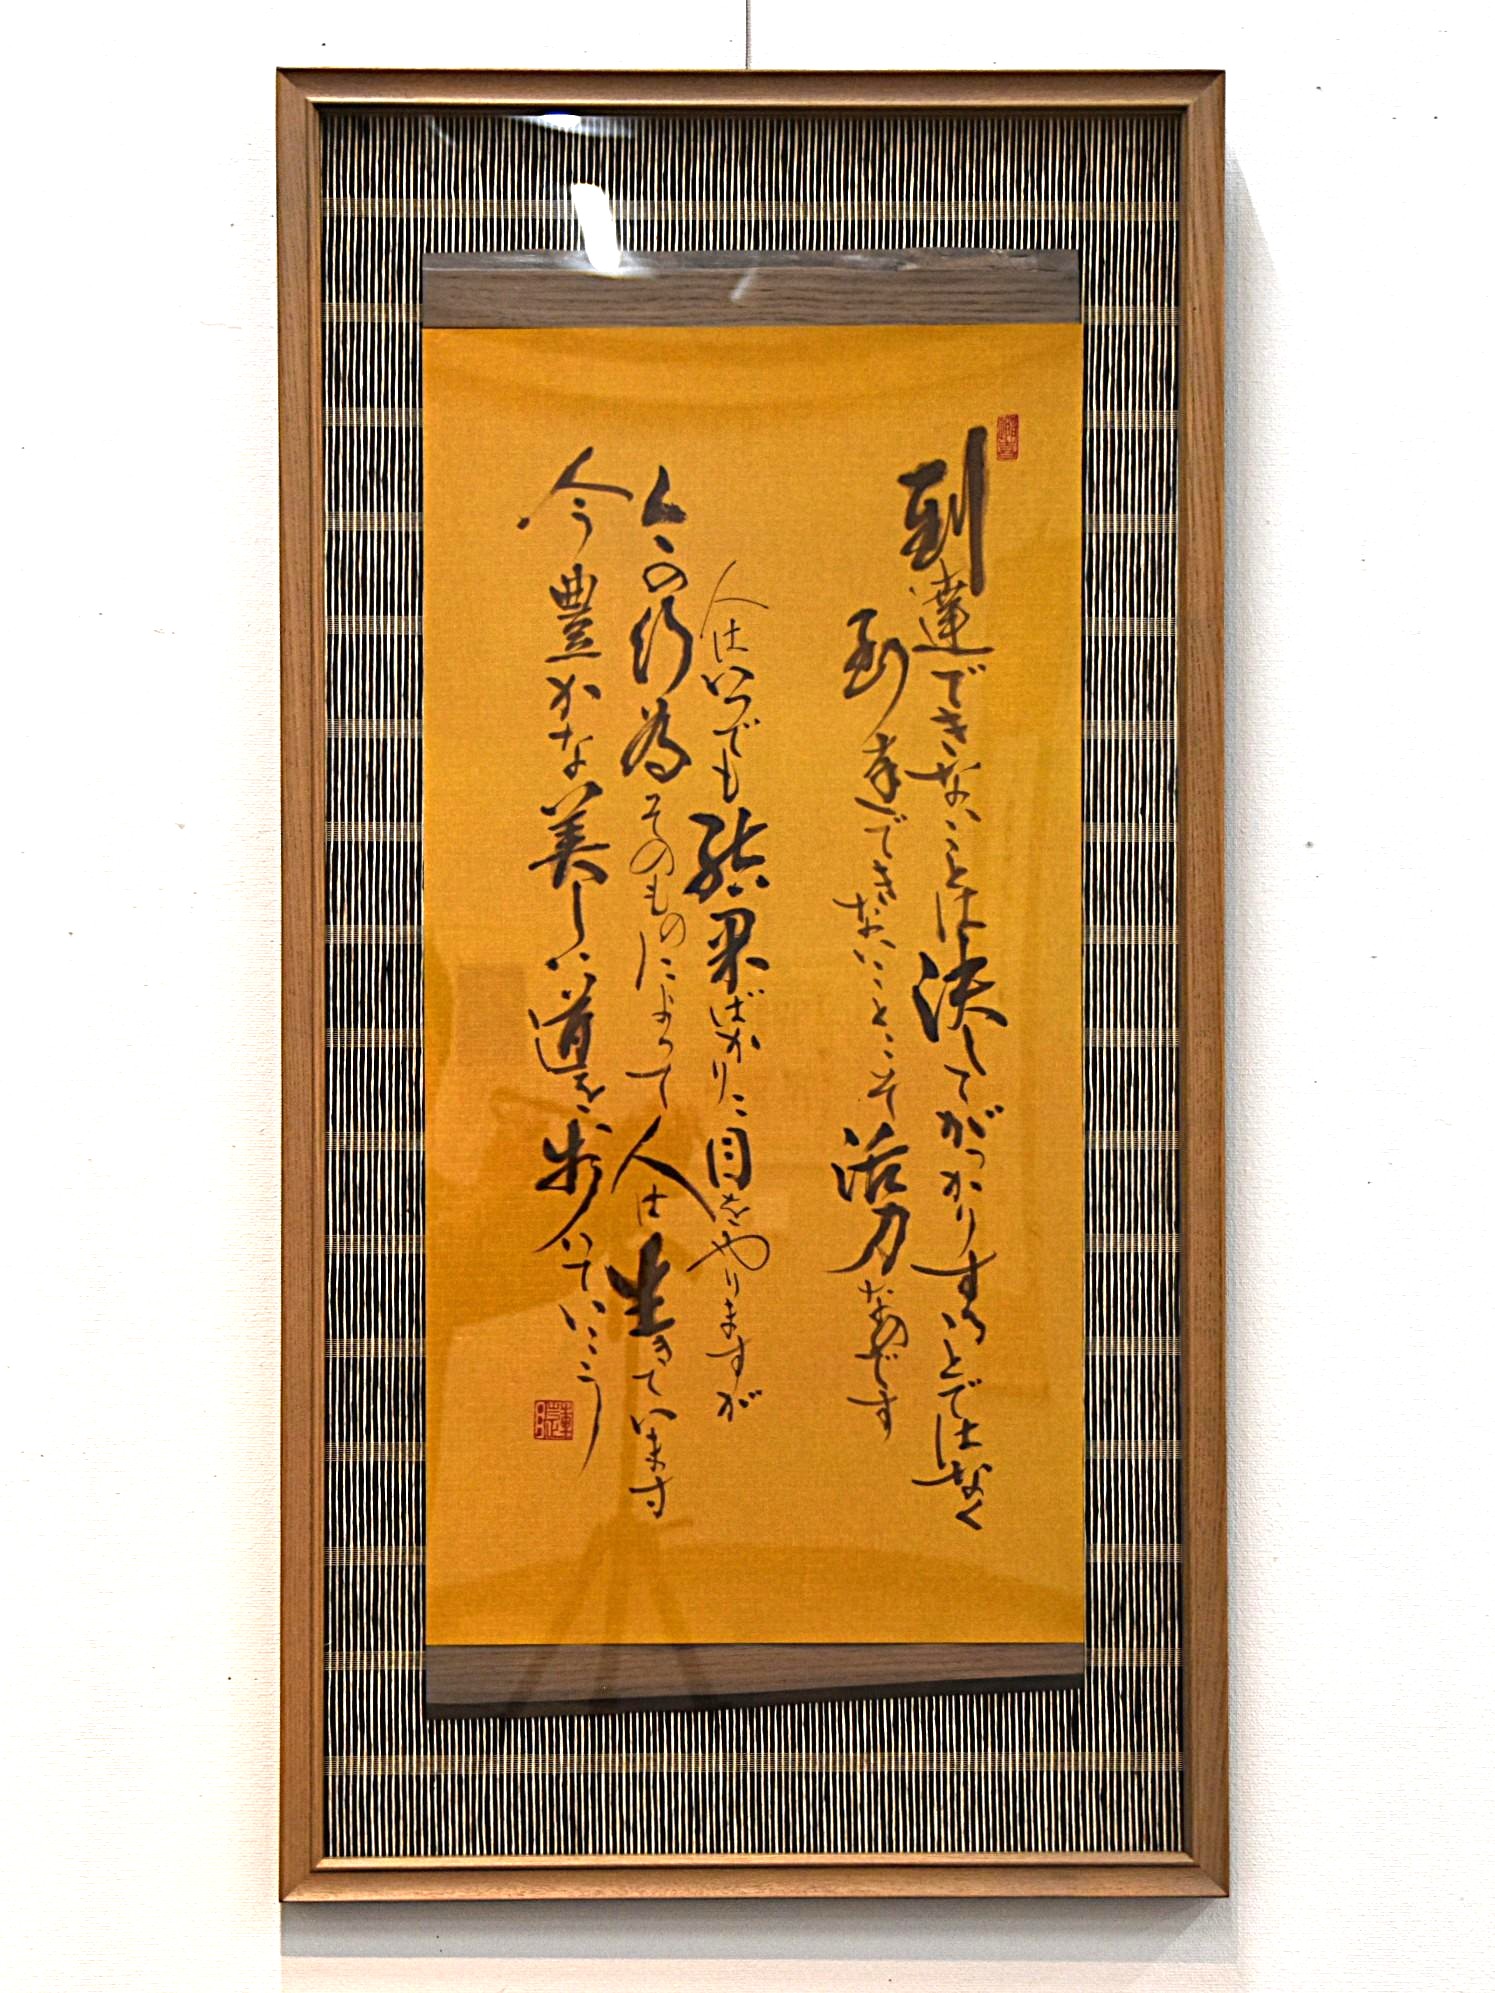 到達できないことは決してがっかりすることではなく
到達できないことこそ活力なのです
人はいつでも結果ばかりに目をやりますが
今の行為そのものによって人は生きています
今豊かな美しい道を歩いていこう